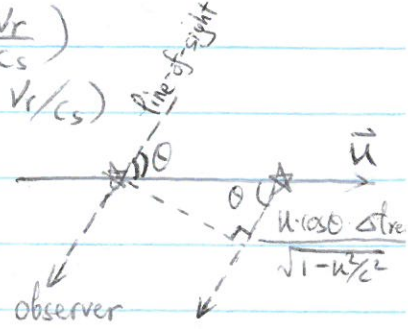 Vr
cs )
Vr/cs)
line-of-sight
θ
u⃗
θ
u·cosθ·Δtre
√1-u²/c²
observer